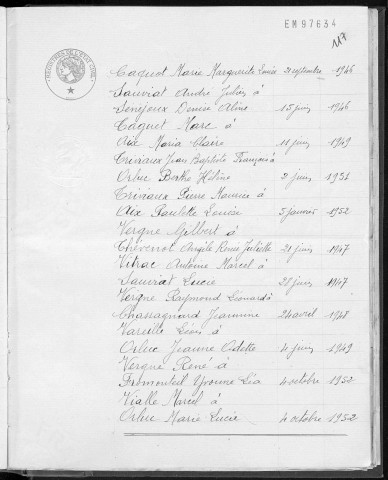 EM97634
117
REGISTRES DE L'ÉTAT CIVIL
Caquot Marie Marguerite Louise 21 septembre 1946
Sauviat André Julien à
Senéjoux Denise Aline 15 juin 1946
Caquet Marc à
Aix Maria Claire 11 juin 1949
Trivaux Jean Baptiste François à
Orluc Berthe Hélène 2 juin 1951
Trivaux Pierre Maurice à
Aix Paulette Louise 5 janvier 1952
Vergne Gilbert à
Cheverrot Angèle Renée Juliette 21 juin 1947
Vitrac Antoine Marcel à
Sauviat Lucie 28 juin 1947
Vergne Raymond Léonard à
Chassagnard Jeannine 24 avril 1948
Vareille Léon à
Orluc Jeanne Odette 4 juin 1949
Vergne René à
Fromonteil Yvonne Léa 4 octobre 1952
Vialle Marcel à
Orluc Marie Lucie 4 octobre 1952